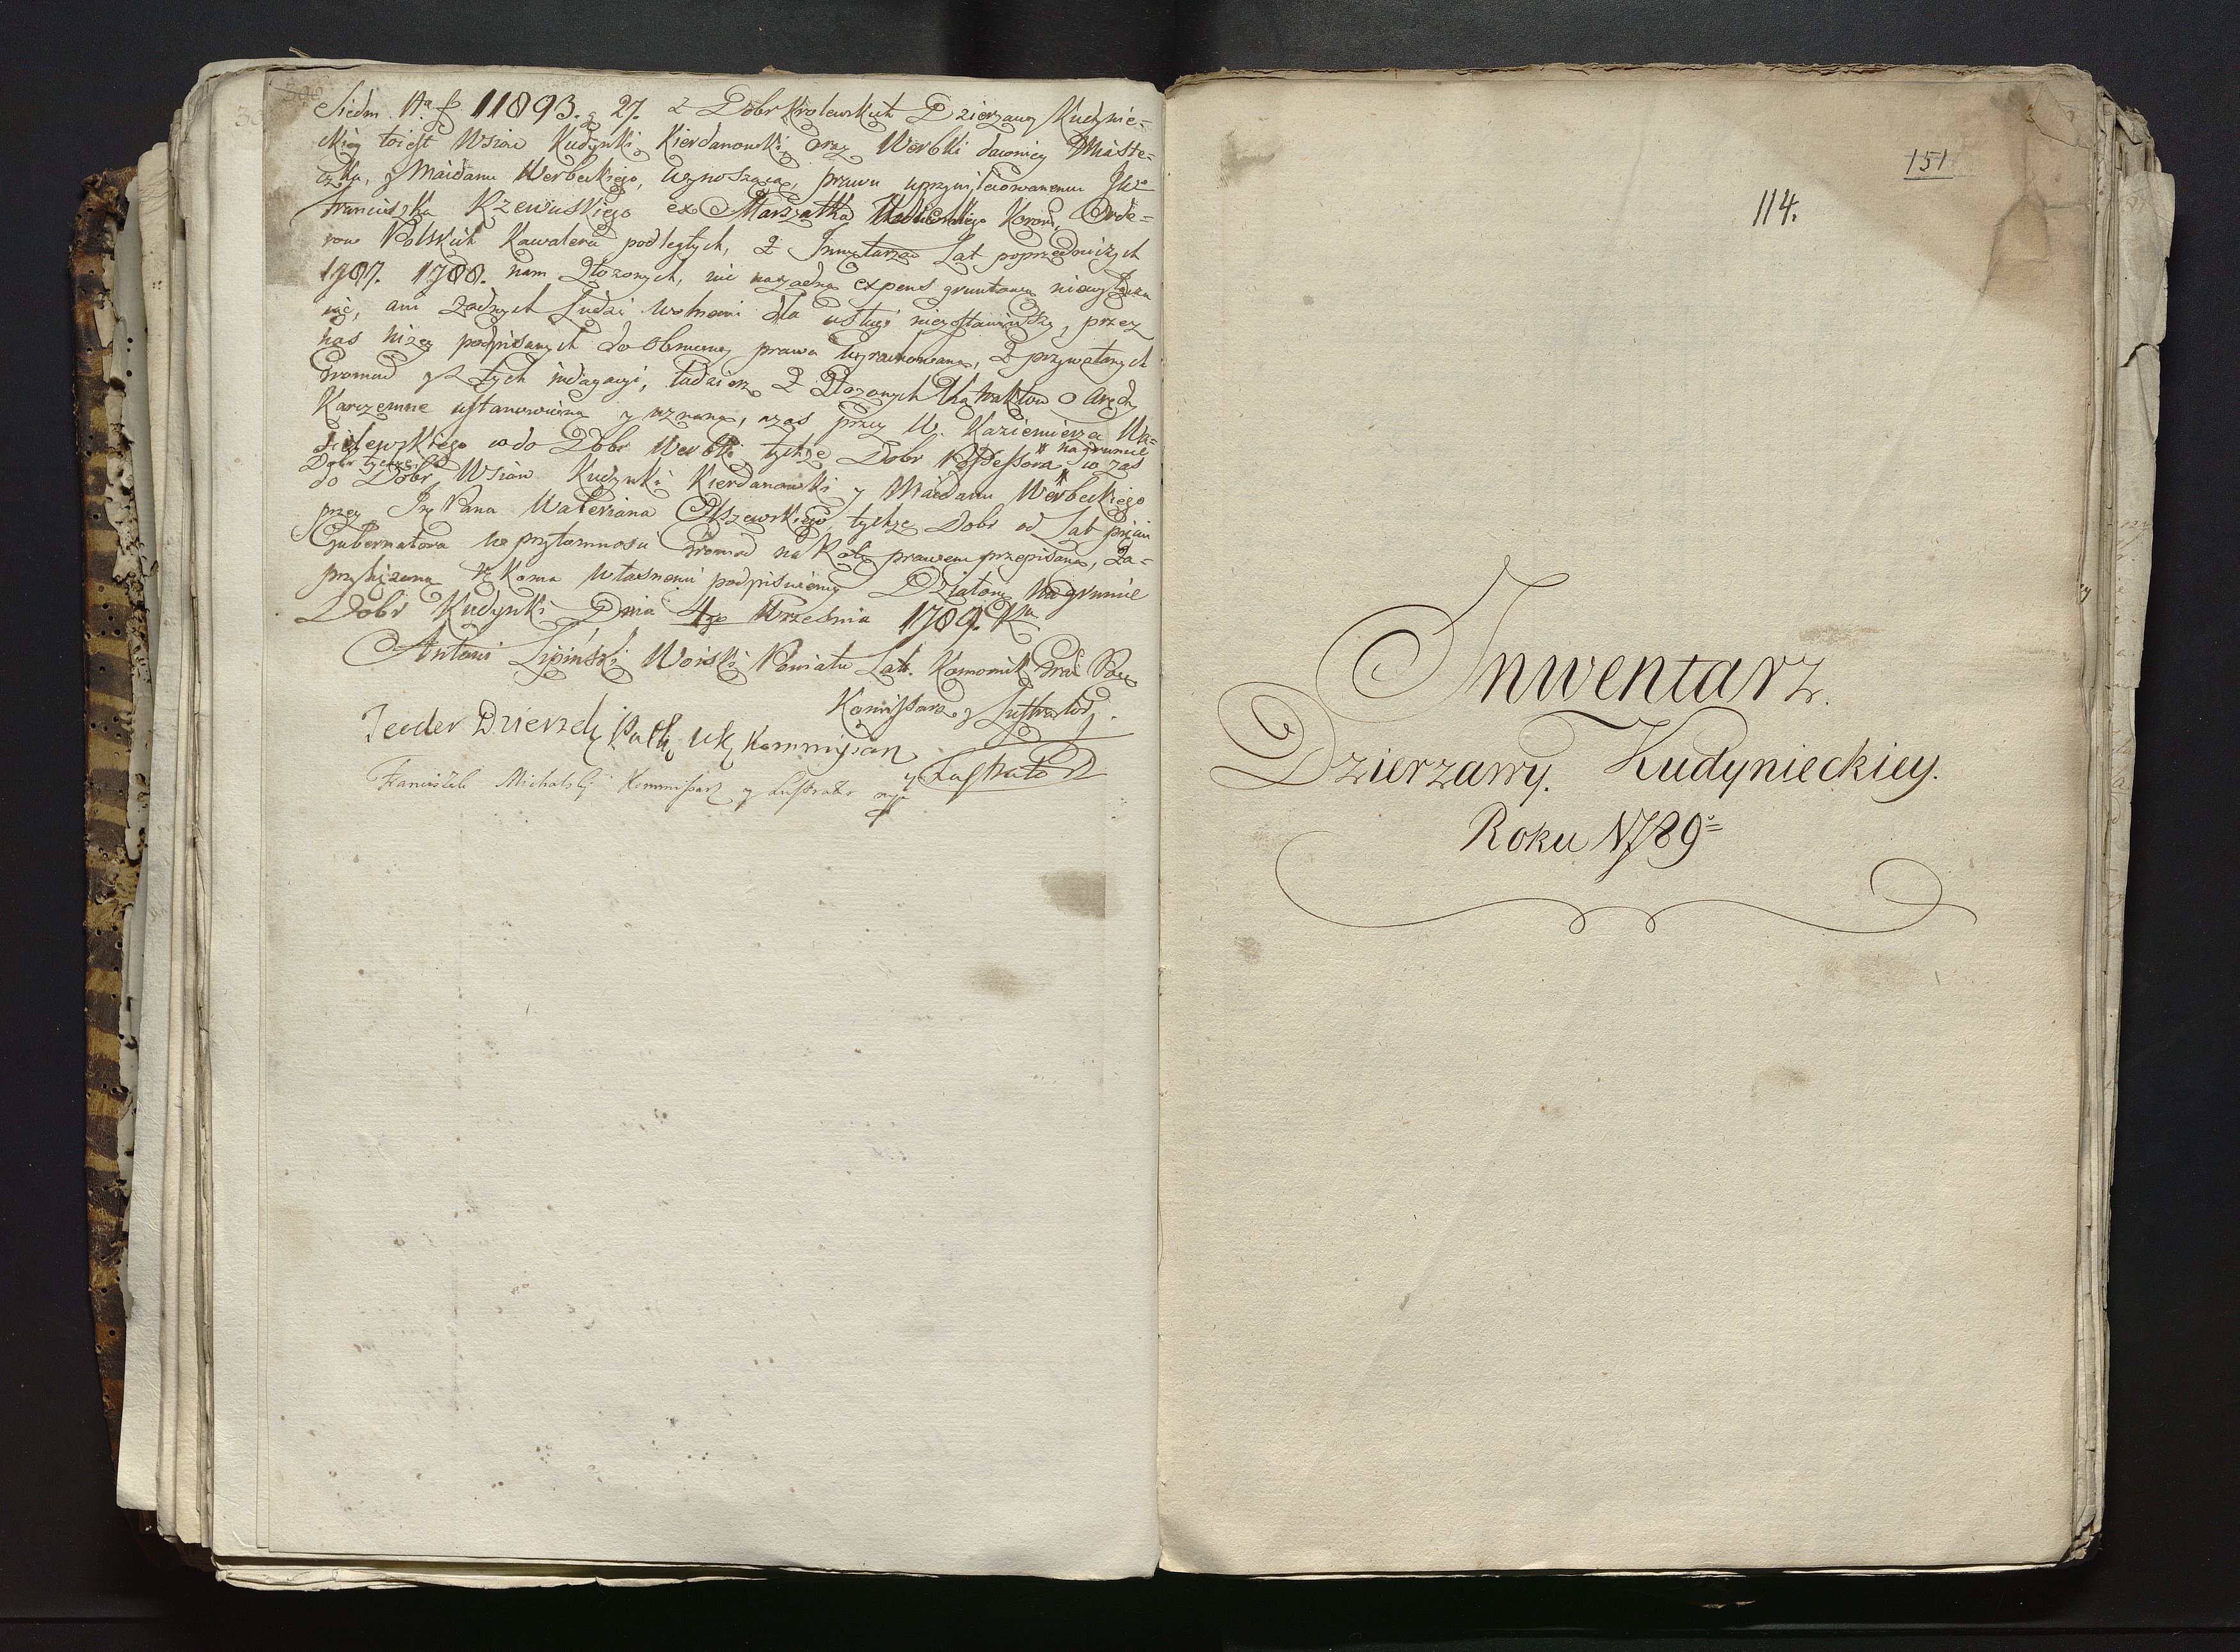 Siedm 11893. g 27. z Dobr Krolewskich Dzierzawy Kudynie=
ckiey toiest Wsiow Kudynki Kierdanowki oraz Werbki dawniey Miaste=
czka, y Maidanu Werbeckiego, wynosząca, prawu uprzywileiowanemu JW°
Franciszka Rzewuskiego ex Marszałka Koronn, Orde=
row Polskich Kawalera podległych, z Inwentarzow Lat poprzedniczych
1787. 1788. nam złozonych, nic na zadną expens gruntową
iąc, ani zadnych Ludzi wolnemi dla usługi niezostawiwszy, przez
nas nizey podpisanych do obrony prawa wyrachowana, z przywołanych
Gromad y z tych indagacyi, tudziesz z złozonych Kątraktow o Arędy
Karczemne ustanowiona y uznana, przez W. Kazimierza Wa=
silewskiego w do Dobr Werbki tychze Dobr Possessora na gruncie
Dobr tychze w zas
do Dobr Wsiow Kudynki Kierdanowki y Maidanu Werbeckiego
przez Jmć Pana Waleriana Olszewskiego tychze Dobr od Lat pięciu
Gubernatora w przytomnosci Gromad na Rotę prawem przepisaną, za=
przysięzona Ręką własnemi podpisuiemy Działo się na gruncie
Dobr Kudynki Dnia 4go Wrzesnia 1789. Rku
Antoni Lipinski Woiski Powiatu Lat. Komornik Gra
Komissarz y Lustrator
Teodor Dzierzek Kommisarz
y Lustrator
Franciszek Michalski Kommissarz y Lustrator mp
151
114.
Inwentarz.
Dzierzawy. Kudynieckiey.
Roku 1789=